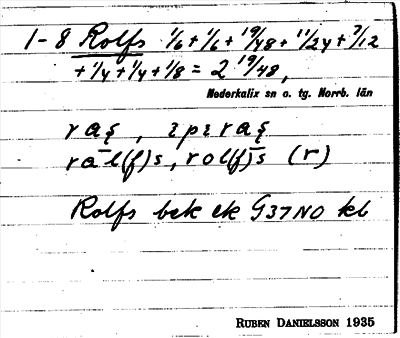 1-8 Rolfs 1/6 + 1/6 + 19/48 + 11/24 + 7/12
+ 1/4 + 1/4 + 1/8 = 2 19/48,
Nederkalix sn o. tg. Norrb. län
Rolfs bek ek G37NO kb
RUBEN DANIELSSON 1935